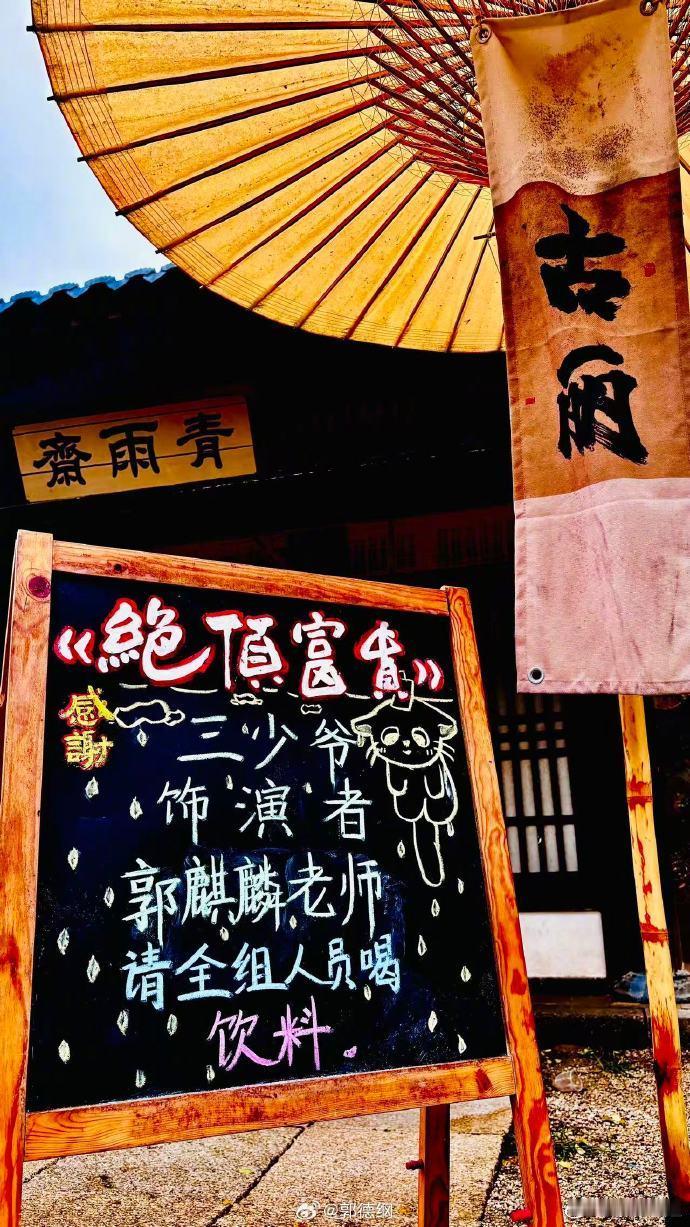 古丽
青雨齋
《絕頂富貴》
感謝
三少爷
饰演者
郭麒麟老师
请全组人员喝
饮料
@郭德纲